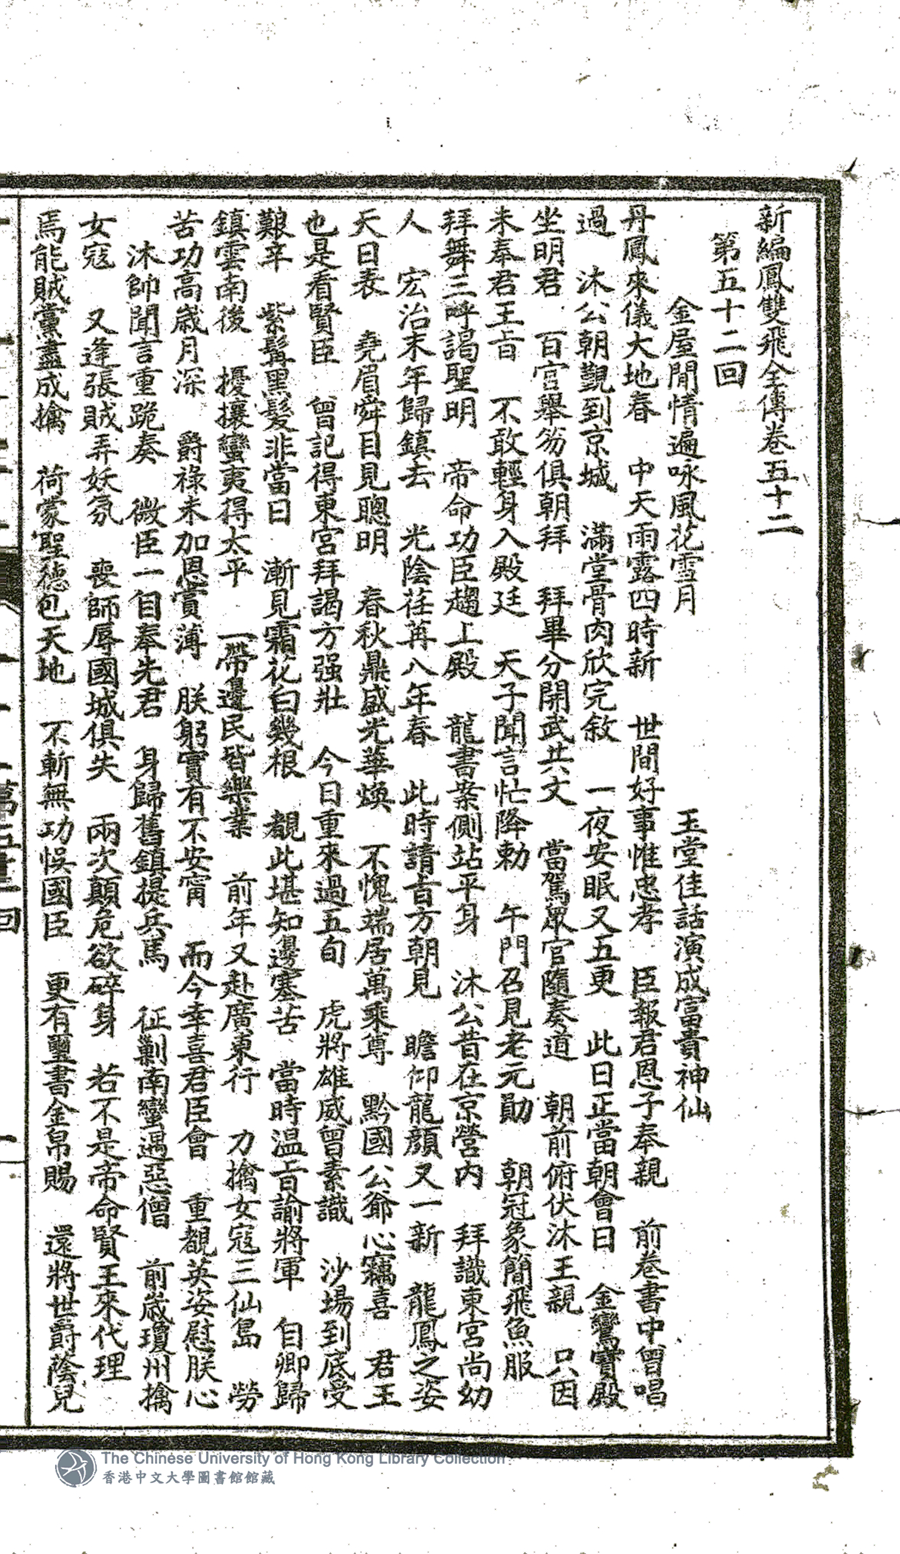 新編鳳雙飛全傳卷五十二
第五十二回
金屋閒情遍咏風花雪月　玉堂佳話演成富貴神仙
丹鳳來儀大地春　中天雨露四時新　世間好事惟忠孝　臣報君恩子奉親　前卷書中曾唱
過　沐公朝覲到京城　滿堂骨肉欣完敘　一夜安眠又五更　此日正當朝會日　金鸞寶殿
坐明君　百官舉笏俱朝拜　拜畢分開武共文　當駕眾官隨奏道　朝前俯伏沐王親　只因
未奉君王旨　不敢輕身入殿廷　天子聞言忙降勅　午門召見老元勛　朝冠象簡飛魚服
拜舞三呼謁聖明　帝命功臣趨上殿　龍書案側站平身　沐公昔在京營內　拜識東宮尚幼
人　宏治末年歸鎮去　光陰荏苒八年春　此時請旨方朝見　瞻仰龍顏又一新　龍鳳之姿
天日表　堯眉舜目見聰明　春秋鼎盛光華煥　不愧端居萬乘尊　黔國公爺心竊喜　君王
也是看賢臣　曾記得東宮拜謁方强壯　今日重來過五旬　虎將雄威曾素識　沙場到底受
艱辛　紫髯黑髮非當日　漸見霜花白幾根　覩此堪知邊塞苦　當時温旨諭將軍　自卿歸
鎮雲南後　擾攘蠻夷得太平　一帶邊民皆樂業　前年又赴廣東行　力擒女寇三仙島　勞
苦功高歲月深　爵祿未加恩賞薄　朕躬實有不安甯　而今幸喜君臣會　重覩英姿慰朕心
沐帥聞言重跪奏　微臣一自奉先君　身歸舊鎮提兵馬　征剿南蠻遇惡僧　前歲瓊州擒
女寇　又逢張賊弄妖氛　喪師辱國城俱失　兩次顛危欲碎身　若不是帝命賢王來代理
焉能賊黨盡成擒　荷蒙聖德包天地　不斬無功悞國臣　更有璽書金帛賜　還將世爵蔭兒
第五十二回
一
The Chinese University of Hong Kong Library Collection
香港中文大學圖書館館藏